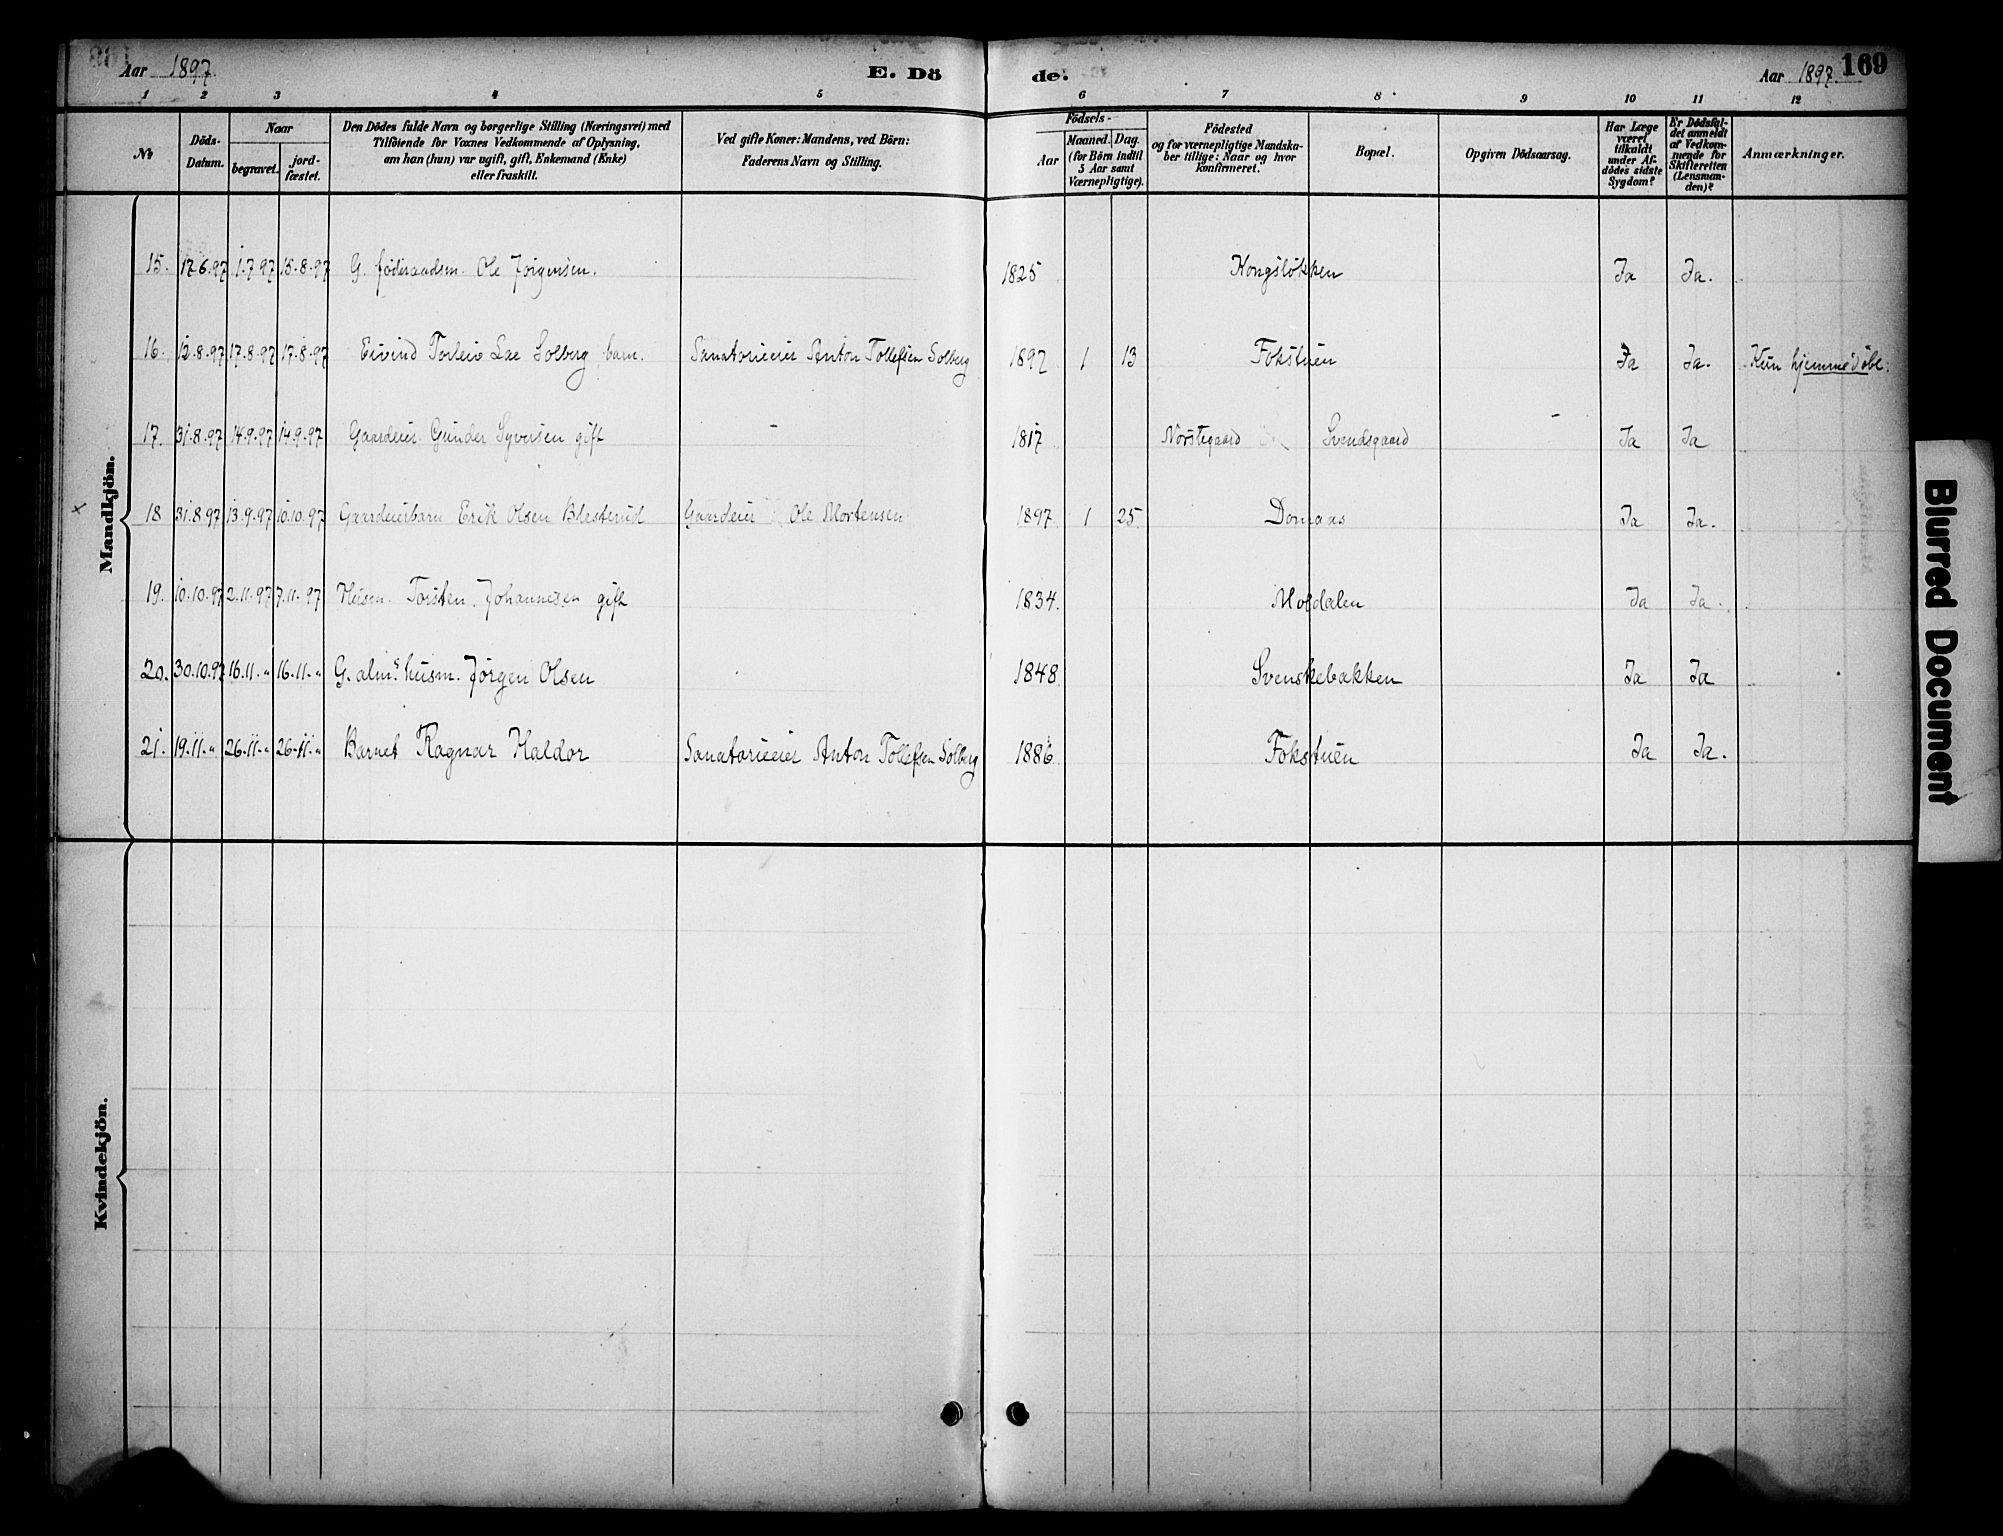 Aar 1897. E. Dö de. Aar 1897. 169
1 2 3 4 5 6 7 8 9 10 11 12
No
Döds-Datum.
Naar
begravet.
jord-fæstet.
Den Dödes fulde Navn og borgerlige Stilling (Næringsvei) med
Tilföiende for Voxnes Vedkommende af Oplysning,
om han (hun) var ugift, gift, Enkemand (Enke)
eller fraskilt.
Ved gifte Koner: Mandens, ved Börn:
Faderens Navn og Stilling.
Födsels-
Aar
Maaned. Dag.
(for Börn indtil
5 Aar samt
Værnepligtige).
Födested
og for værnepligtige Mandska-
ber tillige: Naar og hvor
konfirmeret.
Bopæl.
Opgiven Dödsaarsag.
Har Læge
været
tilkaldt
under Af-
dödes sidste
Sygdom?
Er Dödsfal-
det anmeldt
af Vedkom-
mende for
Skifteretten
(Lensman-
den)?
Anmærkninger.
Mandkjön.
15. 17.6.97 1.7.97 15.8.97 G. föderaadsm. Ole Jörgensen. 1825 Kongsløkken Ja Ja.
16. 12.8.97 17.8.97 17.8.97 Eivind Torleiv Solberg barn. Sanatorieeier Anton Tollefsen Solberg 1897 1 13 Fokstuen Ja Ja. Kun hjemmedöbt.
17. 31.8.97 14.9.97 14.9.97 Gaardeier Gunder Syversen gift - 1817 Norstegaard Svendsgaard - Ja Ja
x 18 31.8.97 13.9.97 10.10.97 Gaardeierbarn Erik Olsen Blesterud Gaardeier Ole Mortensen 1897 1 25 Domaas Ja Ja.
19. 10.10.97 2.11.97 7.11.97 Husm. Torsten Johannesen gift 1834. Ja Ja.
20. 30.10.97 16.11.„ 16.11.„ G. alms. husm. Jörgen Olsen 1848 Svenskebakken Ja Ja
21. 19.11.„ 26.11.„ 26.11.„ Barnet Ragnar Haldor Sanatorieeier Anton Tollefsen Solberg 1886 Fokstuen Ja Ja.
Kvindekjön.
Blurred Document